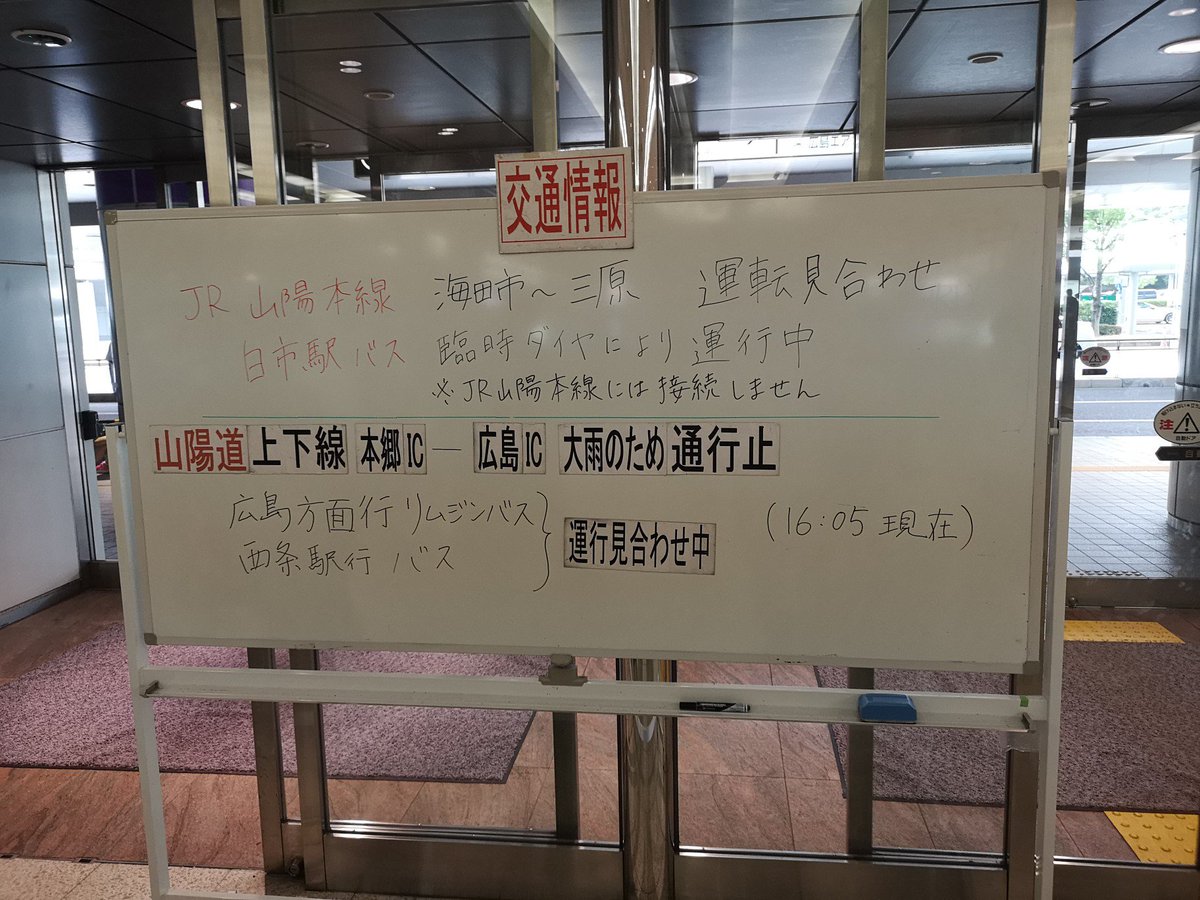 交通情報
JR 山陽本線 海田市～三原 運転見合わせ
白市駅バス 臨時ダイヤにより運行中
※JR山陽本線には接続しません
山陽道 上下線 本郷IC ― 広島IC 大雨のため 通行止
広島方面行リムジンバス
西条駅行バス
運行見合わせ中
(16:05現在)
注